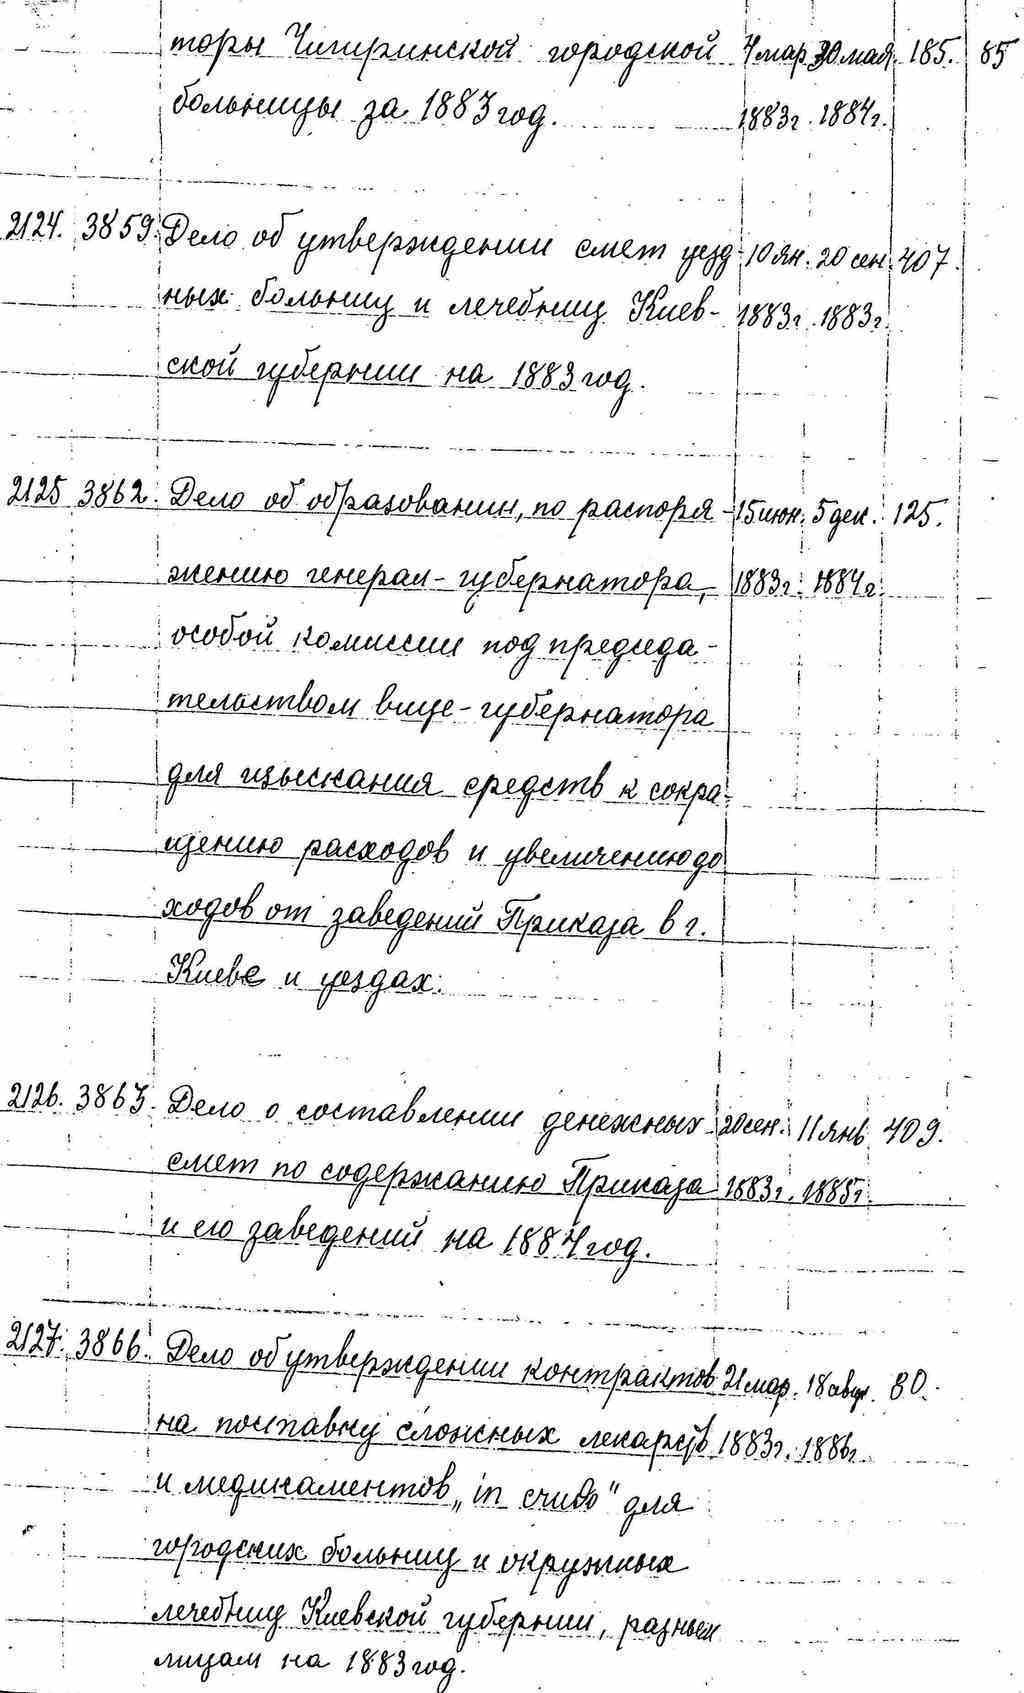 торы Чигиринской городской 4 мар. 30 мая. 185. 85
больницы за 1883 год. 1883г. 1884г.
2124. 3859. Дело об утверждении смет уезд- 10 ян. 20 сен. 407.
ных больниц и лечебниц Киев- 1883г. 1883г.
ской губернии на 1883 год.
2125 3862. Дело об образовании, по распоря- 15 июн. 5 дек. 125.
жению генерал-губернатора, 1883г. 1884г.
особой комиссии под председа-
тельством вице-губернатора
для изыскания средств к сокра-
щению расходов и увеличению до
ходов от заведений Приказа в г.
Киеве и уездах.
2126. 3863. Дело о составлении денежных 20 сен. 11 янв 409.
смет по содержанию Приказа 1883г. 1885г.
и его заведений на 1884 год.
2127. 3866. Дело об утверждении контрактов 21 мар. 18 авг. 80.
на поставку сложных лекарств 1883г. 1886г.
и медикаментов „in crudo" для
городских больниц и окружных
лечебниц Киевской губернии, разным
лицам на 1883 год.